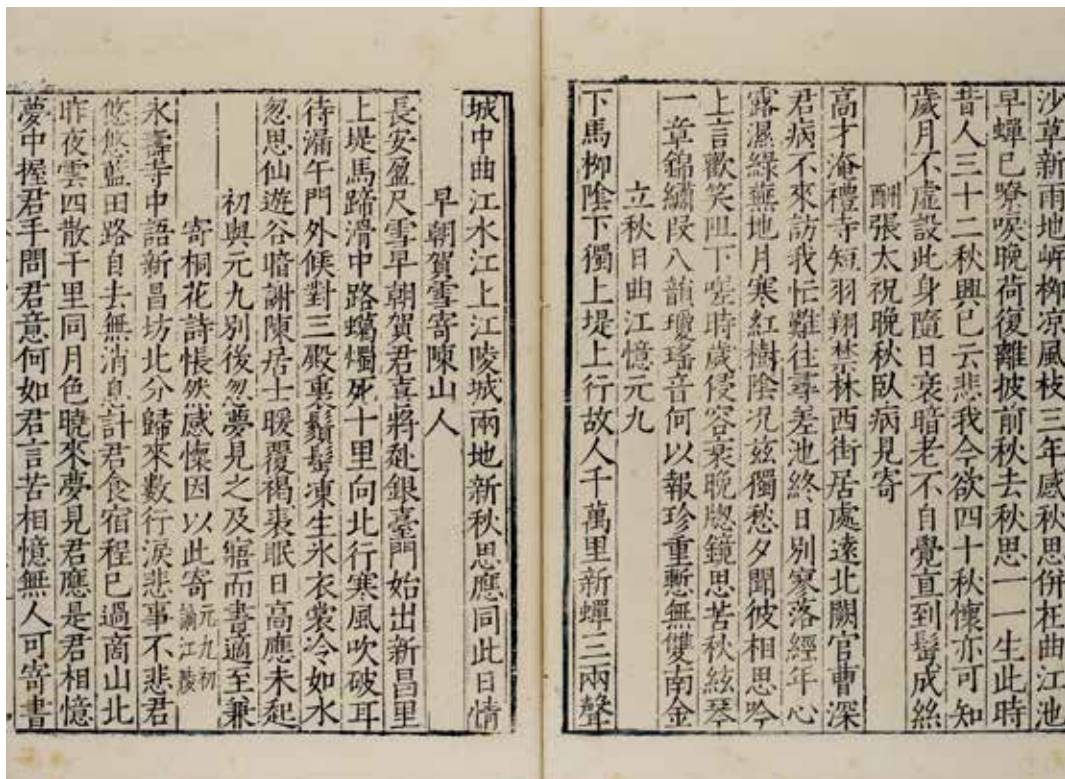 沙草新雨地岸柳凉風枝三年感秋思併在曲江池
早蟬已嘹唳晚荷復離披前秋去秋思一一生此時
昔人三十二秋興已云悲我今欲四十秋懷亦可知
歲月不虛設此身隨日衰暗老不自覺直到鬢成絲
酬張太祝晚秋臥病見寄
高才淹禮寺短羽翔禁林西街居處遠北闕官曹深
君病不來訪我忙難往尋差池終日別寥落經年心
露濕綠蕪地月寒紅樹陰況兹獨愁夕聞彼相思吟
上言歡笑阻下嗟時歲侵容衰晚牕鏡思苦秋絃琴
一章錦繡段八韻瓊瑤音何以報珍重慙無雙南金
立秋日曲江憶元九
下馬柳陰下獨上堤上行故人千萬里新蟬三兩聲
城中曲江水江上江陵城兩地新秋思應同此日情
早朝賀雪寄陳山人
長安盈尺雪早朝賀君喜將赴銀臺門始出新昌里
上堤馬蹄滑中路蠟燭死十里向北行寒風吹破耳
待漏午門外候對三殿裏鬚髩凍生氷衣裳冷如水
忽思仙遊谷暗謝陳居士暖覆褐裘眠日高應未起
初與元九別後忽夢見之及寤而書適至兼
寄桐花詩悵然感懷因以此寄元九初謫江陵
永壽寺中語新昌坊北分歸來數行淚悲事不悲君
悠悠藍田路自去無消息計君食宿程已過商山北
昨夜雲四散千里同月色曉來夢見君應是君相憶
夢中握君手問君意何如君言苦相憶無人可寄書